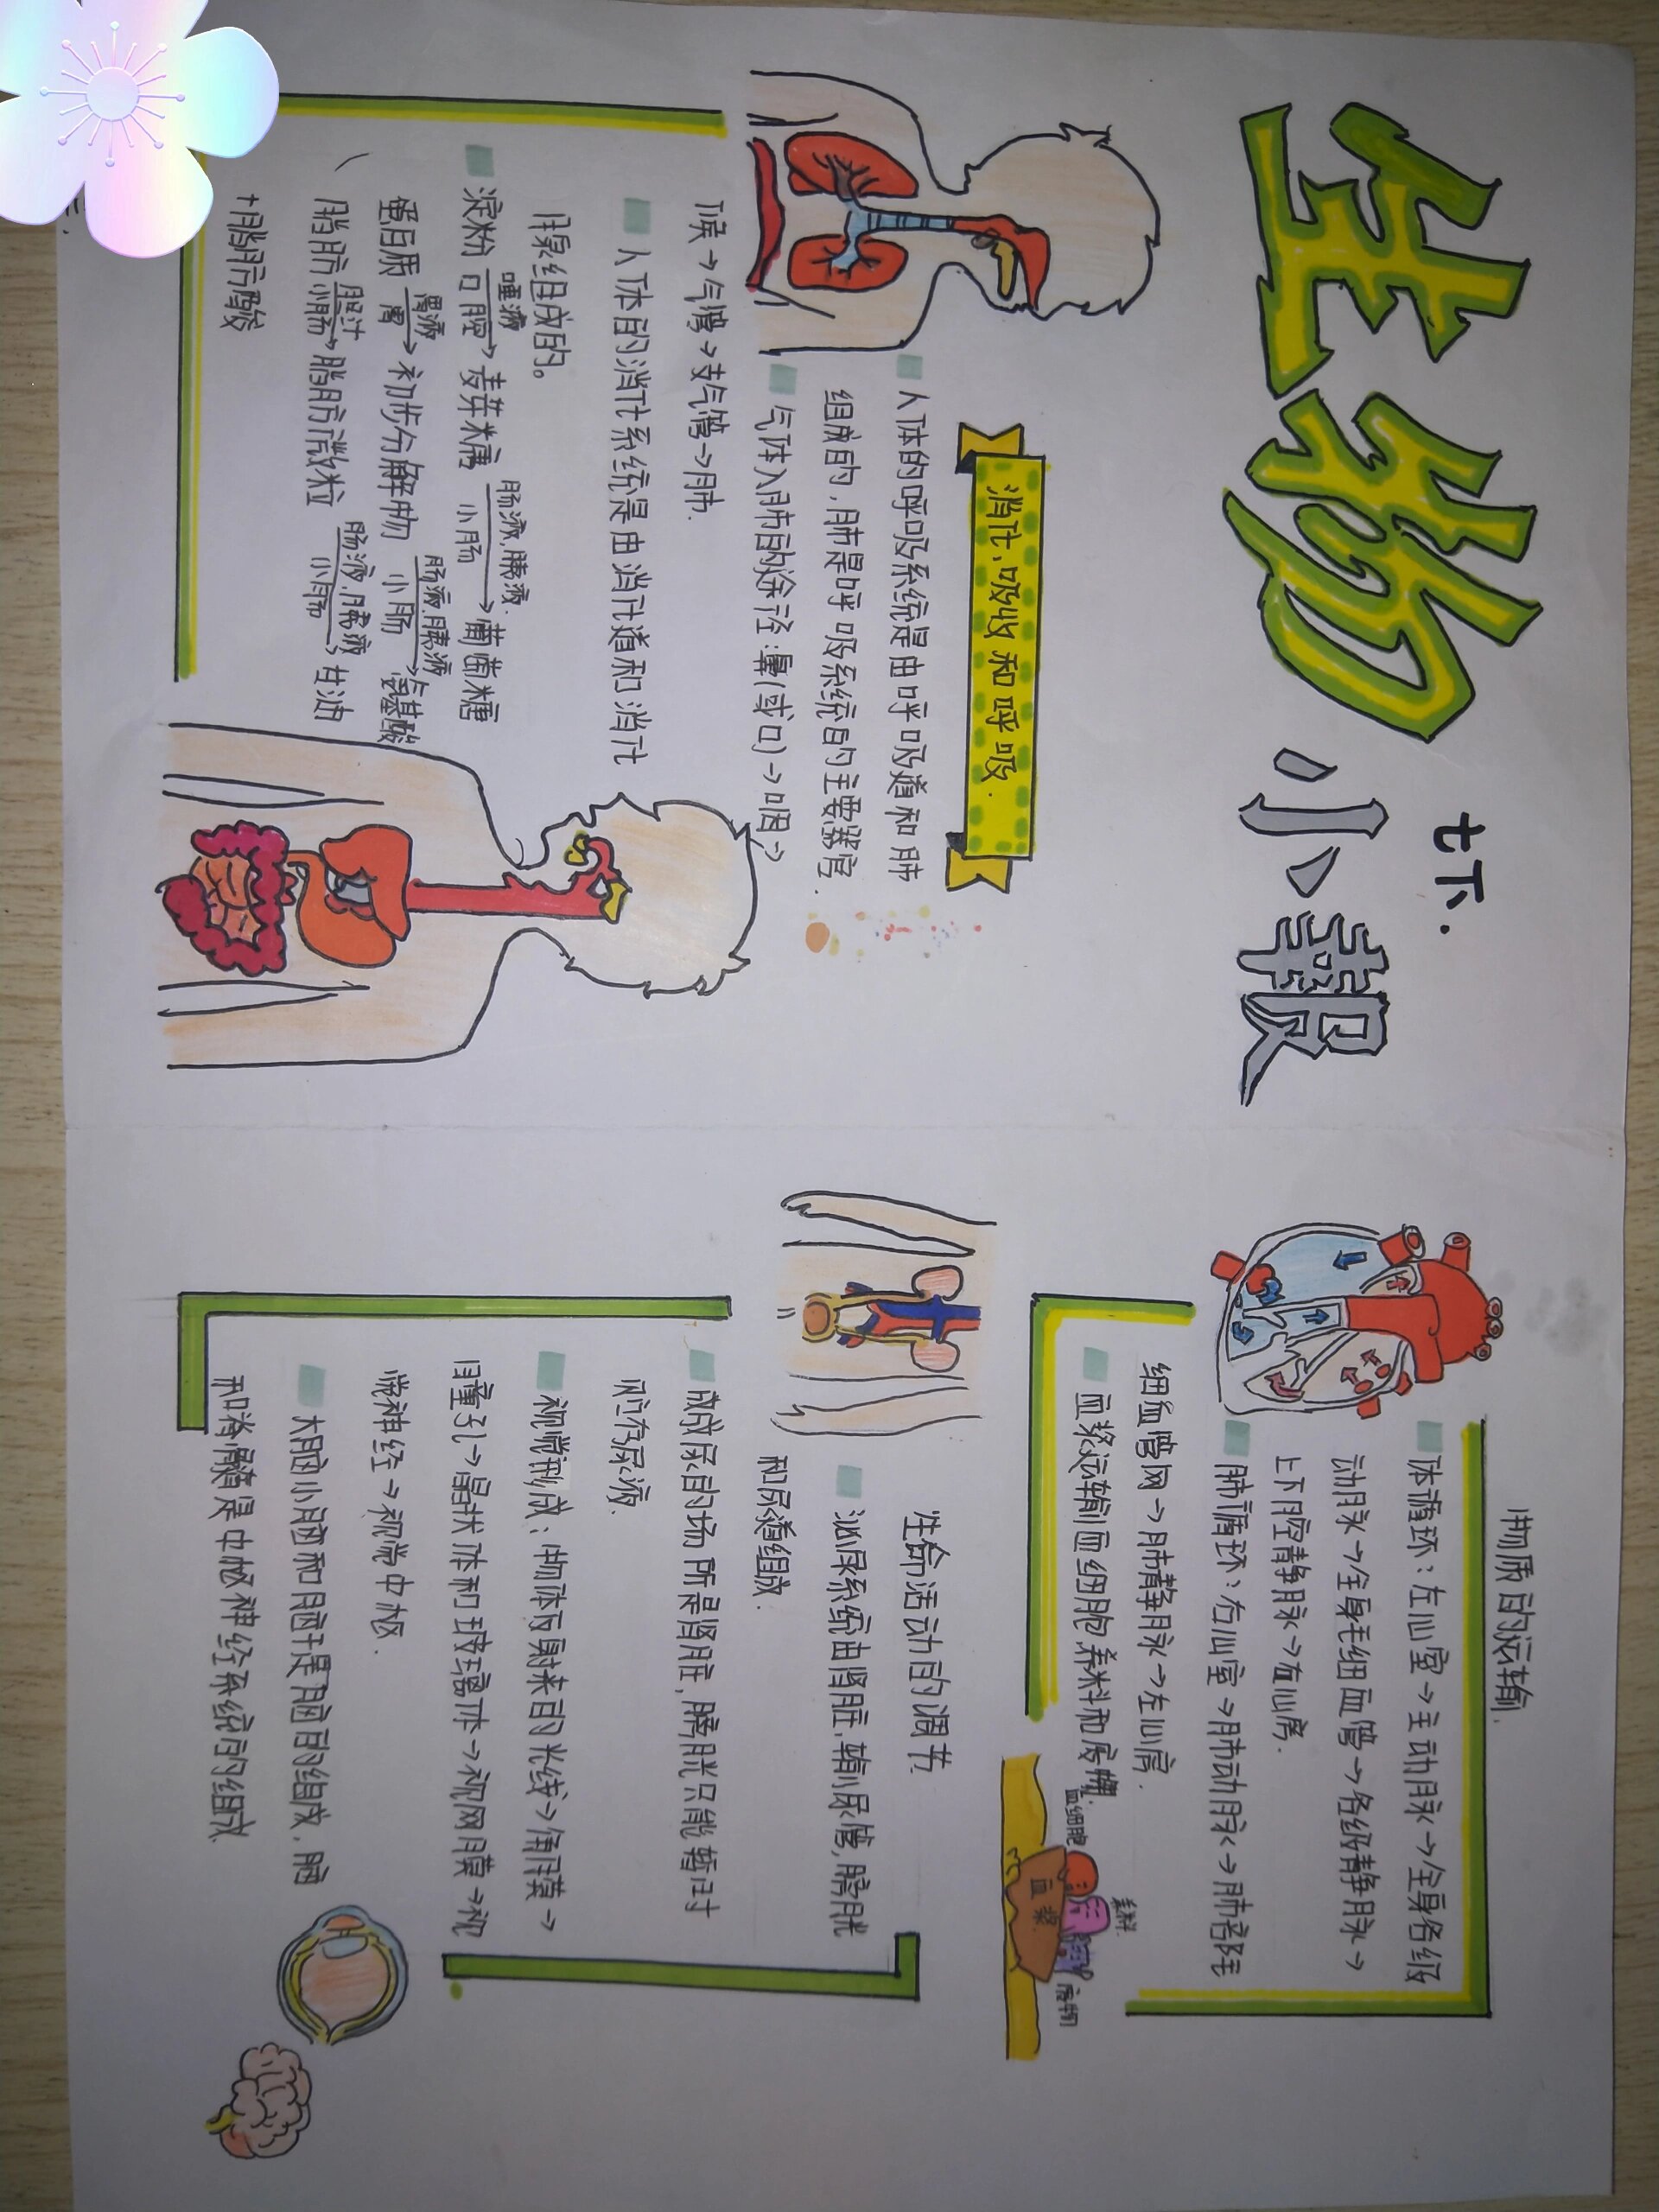 生物小报
七下.
消化、吸收和呼吸.
人体的呼吸系统是由呼吸道和肺
组成的,肺是呼吸系统的主要器官.
气体入肺的途径:鼻(或口)→咽→
喉→气管→支气管→肺.
人体的消化系统是由消化道和消化
腺组成的。
唾液 肠液,胰液.
淀粉 口腔→麦芽糖 小肠→葡萄糖
胃液 肠液,胰液
蛋白质 胃→初步分解物 小肠→氨基酸
胆汁 肠液,胰液
脂肪 小肠→脂肪微粒 小肠→甘油
+脂肪酸
物质的运输.
体循环:左心室→主动脉→全身各级
动脉→全身毛细血管→各级静脉→
上下腔静脉→右心房.
肺循环:右心室→肺动脉→肺部毛
细血管网→肺静脉→左心房.
血浆运输血细胞养料和废物.
血细胞
养料
废物
血浆
生命活动的调节
泌尿系统由肾脏,输尿管,膀胱
和尿道组成.
成尿的场所是肾脏,膀胱只能暂时
贮存尿液.
视觉形成:物体反射来的光线→角膜→
瞳孔→晶状体和玻璃体→视网膜→视
觉神经→视觉中枢.
大脑小脑和脑干是脑的组成,脑
和脊髓是中枢神经系统的组成